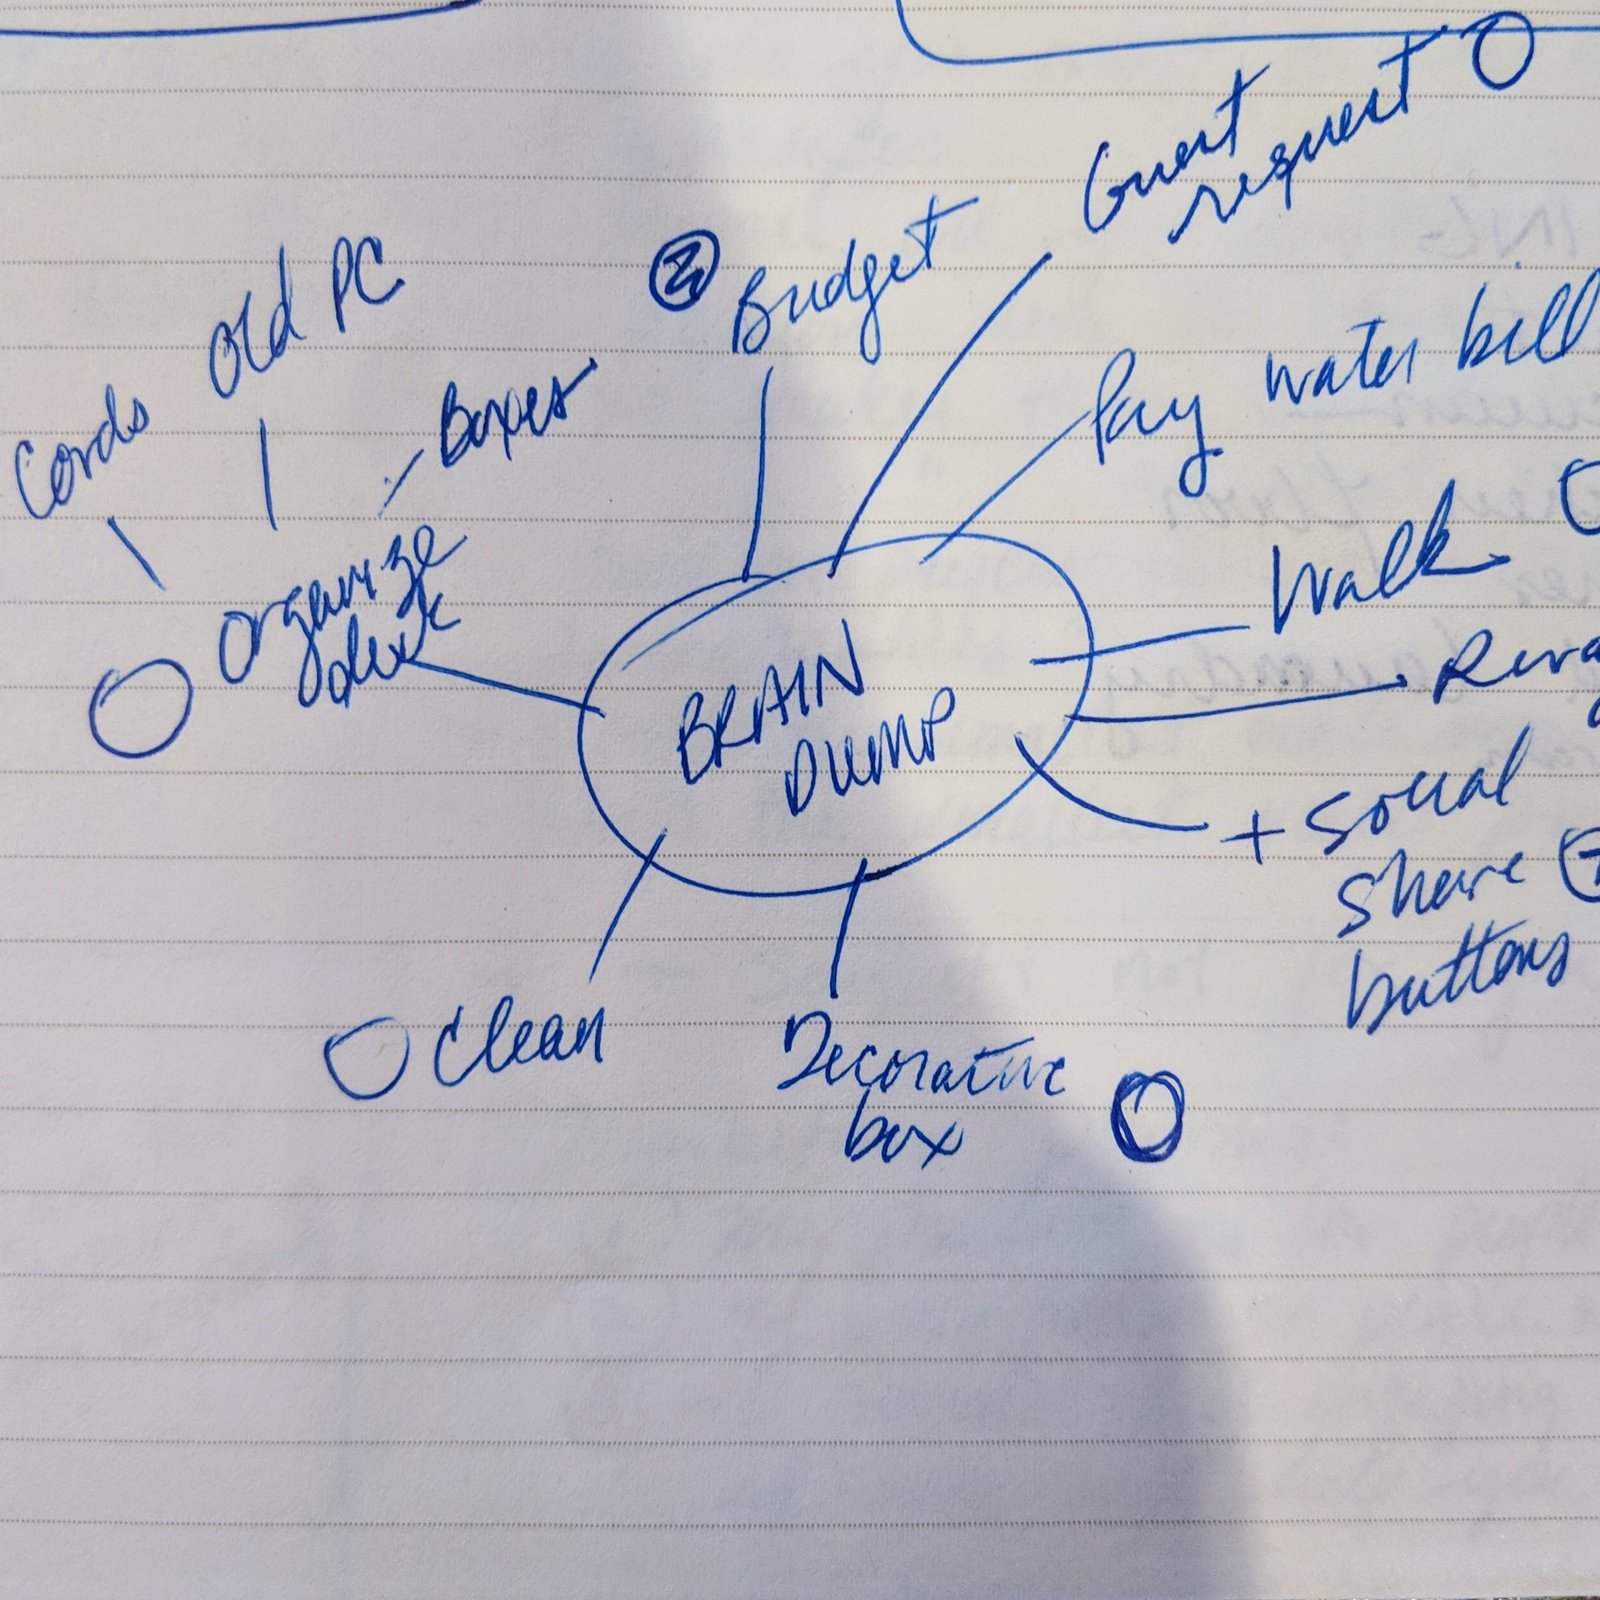 Guest
request
② Budget
Old PC
Cords
- Boxes
Pay water bill
Organize
desk
Walk
BRAIN
DUMP
+ Social
share
buttons
Clean
Decorative
box